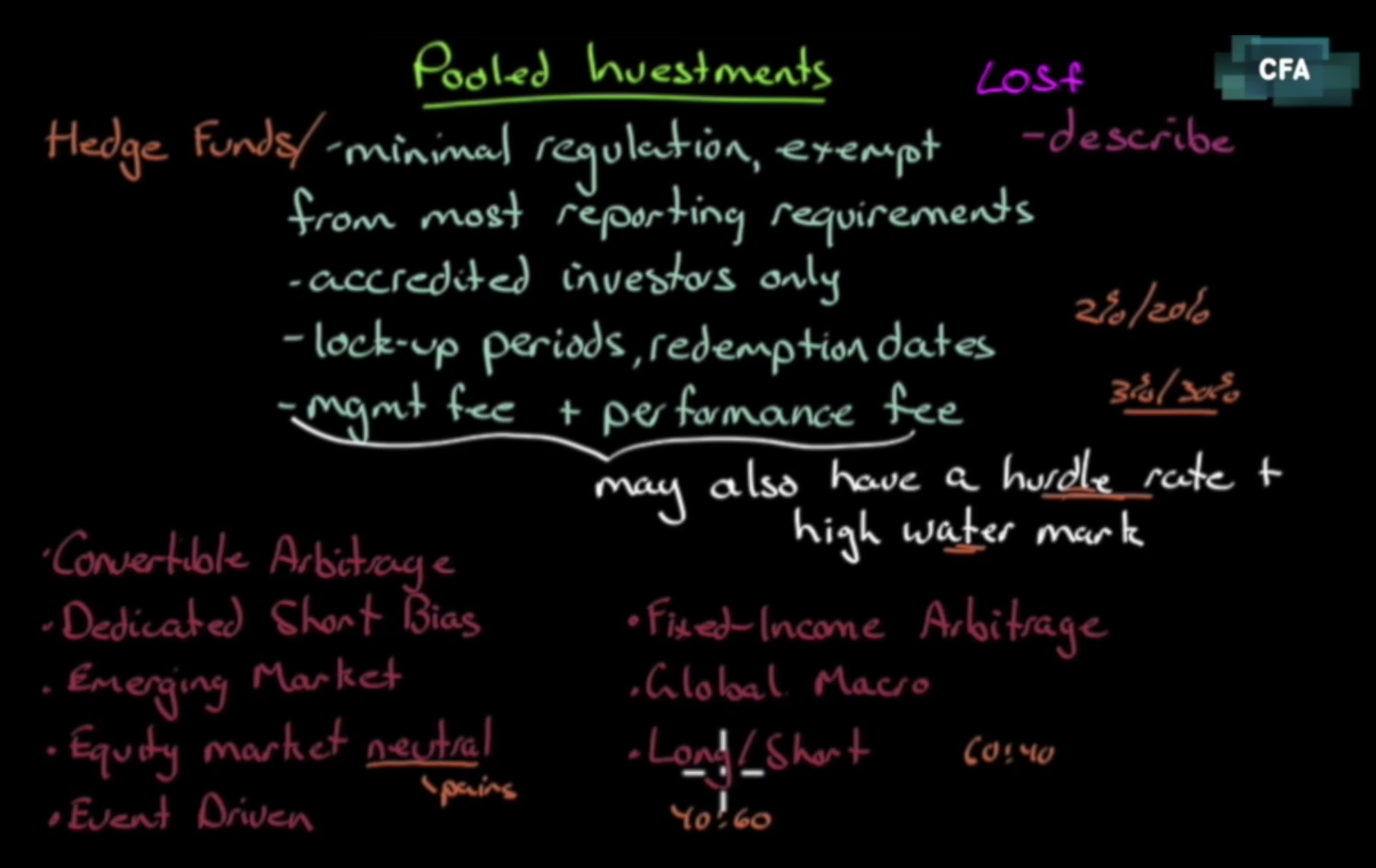 Pooled Investments
LOSf
CFA
Hedge Funds/ -minimal regulation, exempt
-describe
from most reporting requirements
-accredited investors only
2%/20%
-lock-up periods, redemption dates
3%/30%
-mgmt fee + performance fee
may also have a hurdle rate +
high water mark
·Convertible Arbitrage
·Dedicated Short Bias
·Emerging Market
·Equity market neutral
pairs
·Event Driven
·Fixed-Income Arbitrage
·Global Macro
·Long/Short 60:40
40:60